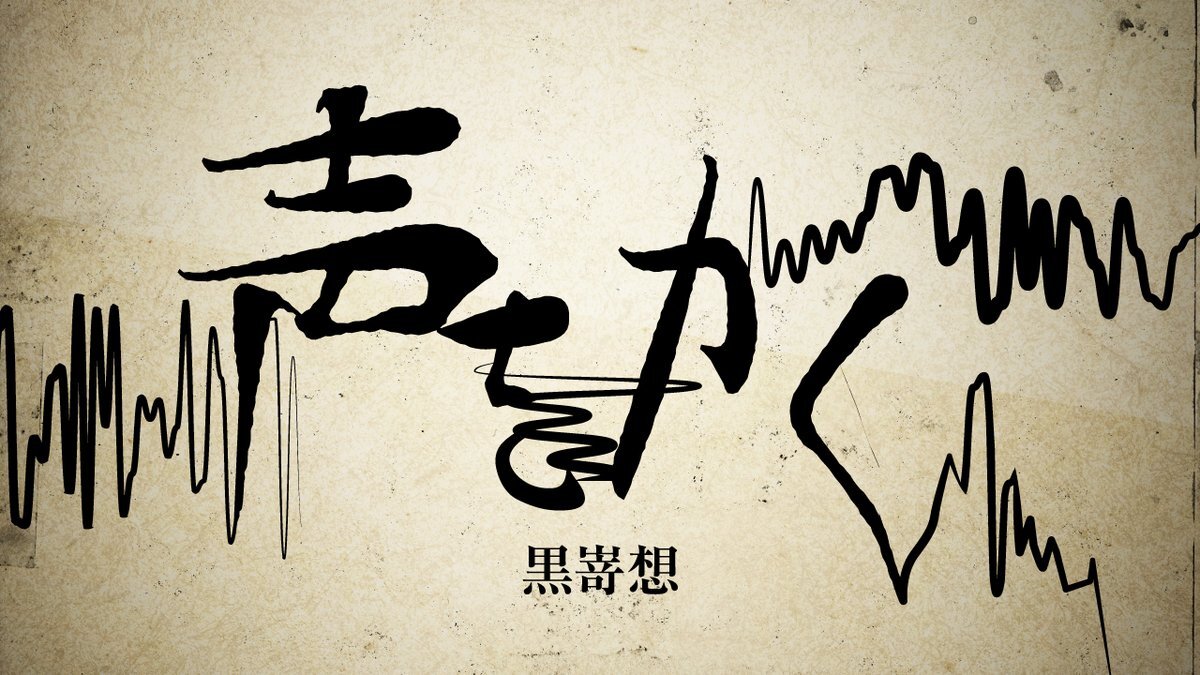 声をかく
黒嵜想